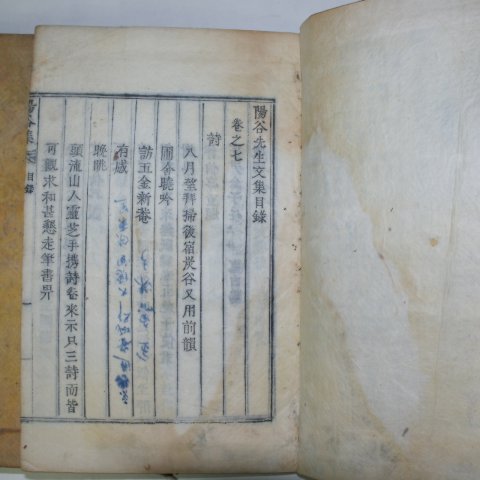 陽谷先生文集目錄
卷之七
詩
八月望拜掃後宿炭谷又用前韻
聞金曉吟
訪玉金新巷
有感
晚眺
頭流山人靈芝手携詩卷來示只三詩而皆
可觀求和甚懇走筆書畀
陽谷集 目錄